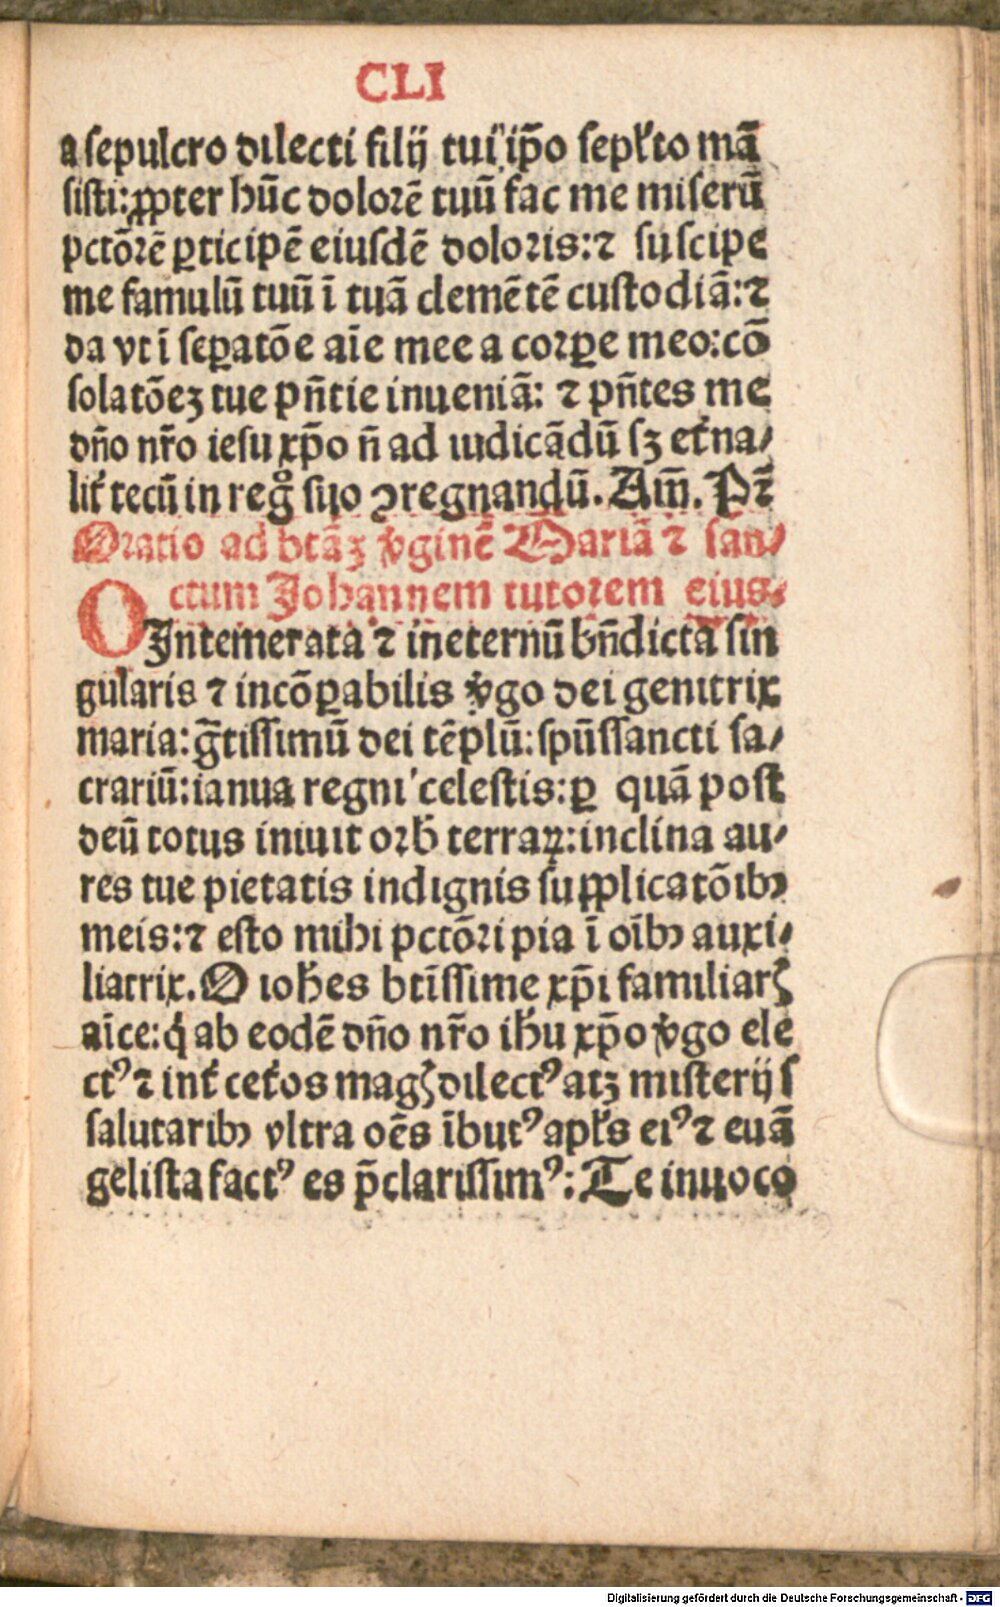 CLI
a sepulcro dilecti filij tui ip̄o sepl̕to mā
sisti: ꝓpter hūc dolorē tuū fac me miserū
pctōrē ꝑticipē eiusdē doloris: ⁊ suscipe
me famulū tuū ī tuā clemētē custodiā: ⁊
da vt ī seꝑatōe aīe mee a corꝑe meo: cō
solatōeʒ tue pn̄tie inueniā: ⁊ pn̄tes me
dn̄o nr̄o iesu xp̄o n̄ ad iudicādū sʒ et̕na/
lit̕ tecū in regͦ suo ꝯregnandū. Am̄. Pr̄
Oratio ad btāʒ v̕ginē Mariā ⁊ san/
ctum Johannem tutorem eius.
O Intemerata ⁊ ineternū bn̄dicta sin
gularis ⁊ incōꝑabilis v̕go dei genitrix
maria: gr̄tissimū dei tēplū: spūssancti sa/
crariū: ianua regni celestis: ꝑ quā post
deū totus iniuit orb̕ terraꝝ: inclina au/
res tue pietatis indignis suꝓplicatōibꝫ
meis: ⁊ esto mihi pctōri pia ī oībꝫ auxi/
liatrix. O ioh̄es btīssime xp̄i familiarꝭ
aīce: q̇ ab eodē dn̄o nr̄o ih̄u xp̄o v̕go ele
ctꝰ ⁊ int̕ cet̕os magꝭ dilectꝰ atꝫ misterijs
salutaribꝫ vltra oēs ībutꝰ apl̕s eiꝰ ⁊ euā
gelista factꝰ es p̄clarissimꝰ: Te inuoco
Digitalisierung gefördert durch die Deutsche Forschungsgemeinschaft - DFG